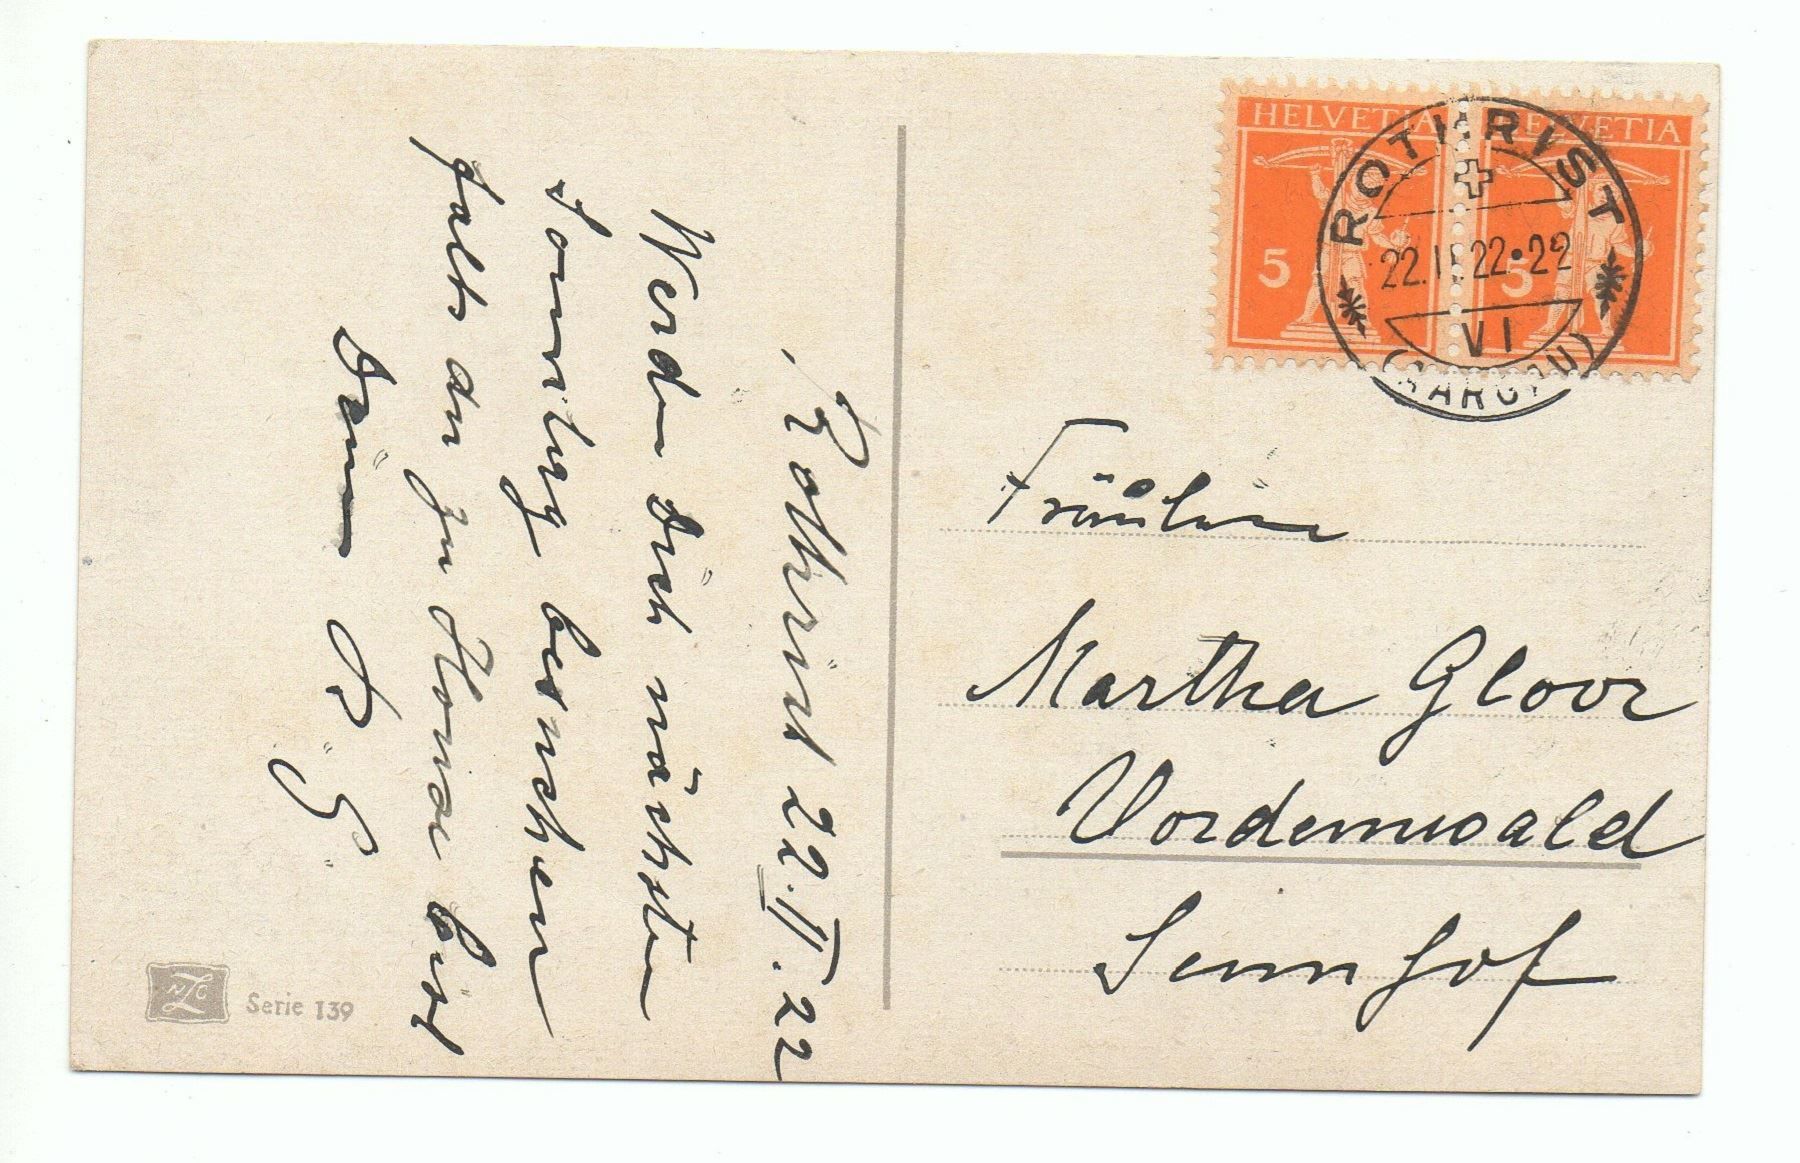 Rothrist 22.II.22
Werde Dich nächsten
Sonntag besuchen
falls du zu Hause bist
Dein
HELVETIA
HELVETIA
5
5
ROTHRIST
22.II.22·22
VI
(AARGAU)
Fräulein
Martha Gloor
Vordemwald
Sennhof
Serie 139